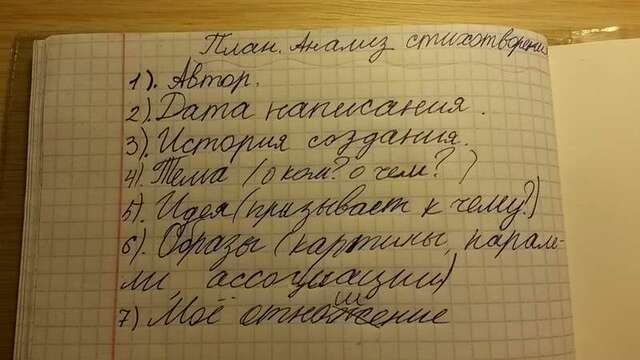 План. Анализ стихотворения
1). Автор.
2). Дата написания.
3). История создания.
4). Тема (о ком? о чем?)
5). Идея (призывает к чему?)
6). Образы (картины, паралле-
ли, ассоциации)
7) Моё отношение